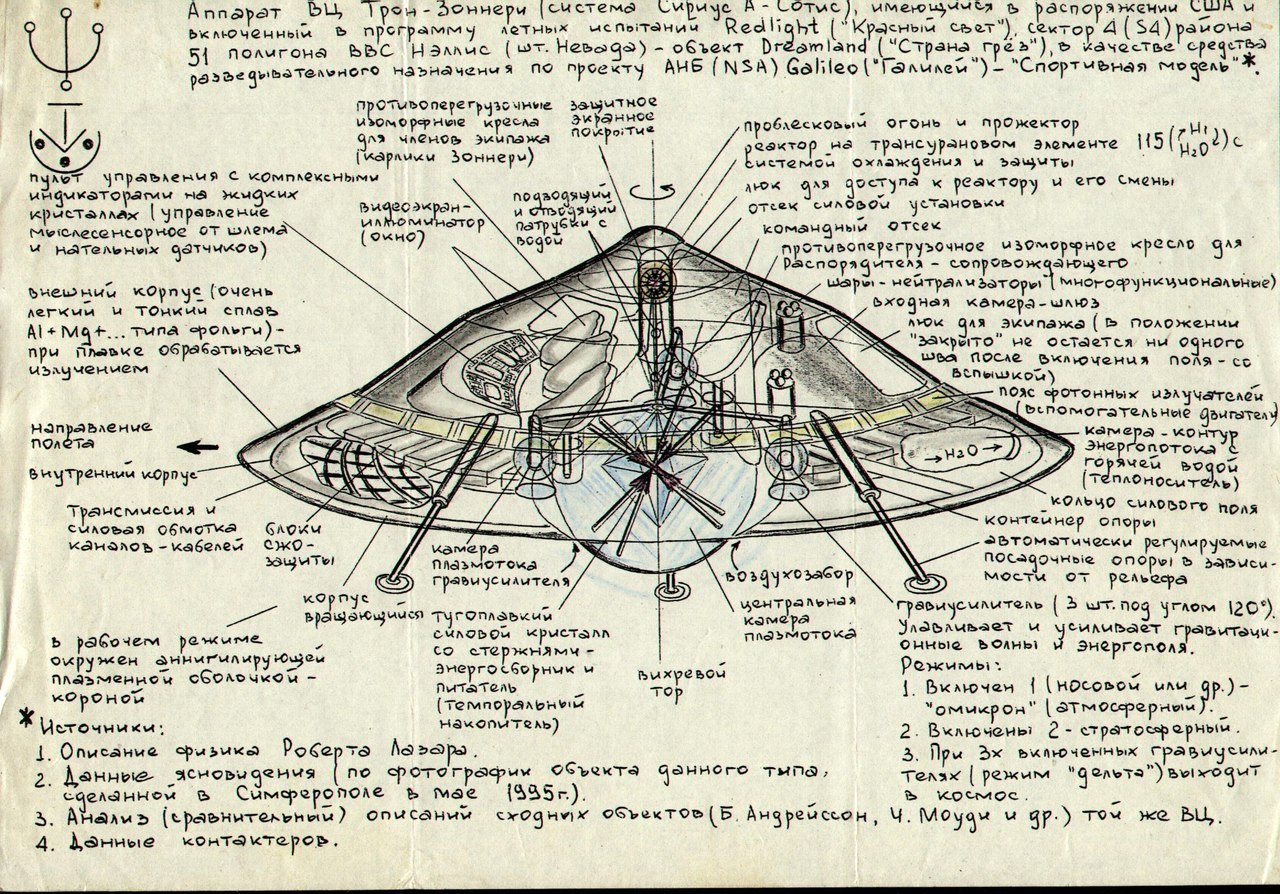 Аппарат ВЦ Трон-Зоннери (система Сириус А - Сотис), имеющийся в распоряжении США и
включенный в программу летных испытаний Redlight ("Красный свет"), сектор 4 (S4) района
51 полигона ВВС Нэллис (шт. Невада) - объект Dreamland ("Страна грёз"), в качестве средства
разведывательного назначения по проекту АНБ (NSA) Galileo ("Галилей") - "Спортивная модель"*.
противоперегрузочные
изоморфные кресла
для членов экипажа
(карлики Зоннери)
защитное
экранное
покрытие
проблесковый огонь и прожектор
реактор на трансурановом элементе 115 (H1 H2O) с
системой охлаждения и защиты
люк для доступа к реактору и его смены
отсек силовой установки
командный отсек
противоперегрузочное изоморфное кресло для
Распорядителя - сопровождающего
шары-нейтрализаторы (многофункциональные)
входная камера-шлюз
люк для экипажа (в положении
"закрыто" не остается ни одного
шва после включения поля - со
вспышкой)
пояс фотонных излучателей
(вспомогательные двигатели)
камера-контур
энергопотока с
горячей водой
(теплоноситель)
кольцо силового поля
контейнер опоры
автоматически регулируемые
посадочные опоры в зависи-
мости от рельефа
пульт управления с комплексными
индикаторами на жидких
кристаллах (управление
мыслесенсорное от шлема
и нательных датчиков)
видеоэкран-
иллюминатор
(окно)
подводящий
и отводящий
патрубки с
водой
внешний корпус (очень
легкий и тонкий сплав
Al+Mg+... типа фольги) -
при плавке обрабатывается
излучением
направление
полета
внутренний корпус
→H2O→
Трансмиссия и
силовая обмотка
каналов-кабелей
блоки
СЖО-
защиты
камера
плазмотока
гравиусилителя
воздухозабор
центральная
камера
плазмотока
корпус
вращающийся
тугоплавкий
силовой кристалл
со стержнями-
энергосборник и
питатель
(темпоральный
накопитель)
вихревой
тор
в рабочем режиме
окружен аннигилирующей
плазменной оболочкой-
короной
гравиусилитель (3 шт. под углом 120°).
Улавливает и усиливает гравитаци-
онные волны и энергополя.
Режимы:
1. Включен 1 (носовой или др.) -
"омикрон" (атмосферный).
2. Включены 2 - стратосферный.
3. При 3х включенных гравиусили-
телях (режим "дельта") выходит
в космос.
* Источники:
1. Описание физика Роберта Лазара.
2. Данные ясновидения (по фотографии объекта данного типа,
сделанной в Симферополе в мае 1995г.).
3. Анализ (сравнительный) описаний сходных объектов (Б. Андрейссон, Ч. Моуди и др.) той же ВЦ.
4. Данные контактеров.